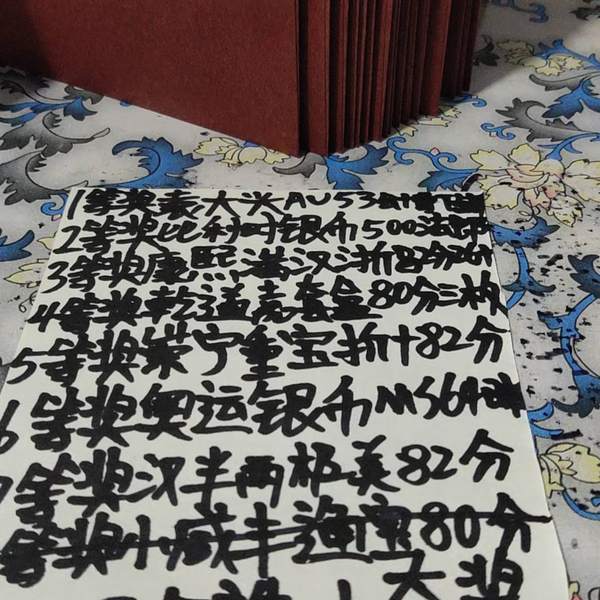 1等奖袁大头AU53
2等奖比利时银币500法郎
3等奖康熙满汉浙82分
4等奖乾道光套盒80分三枚
5等奖崇宁重宝折十82分
6等奖奥运银币MS64
7等奖汉半两极美82分
等奖小咸丰通宝80分
大奖